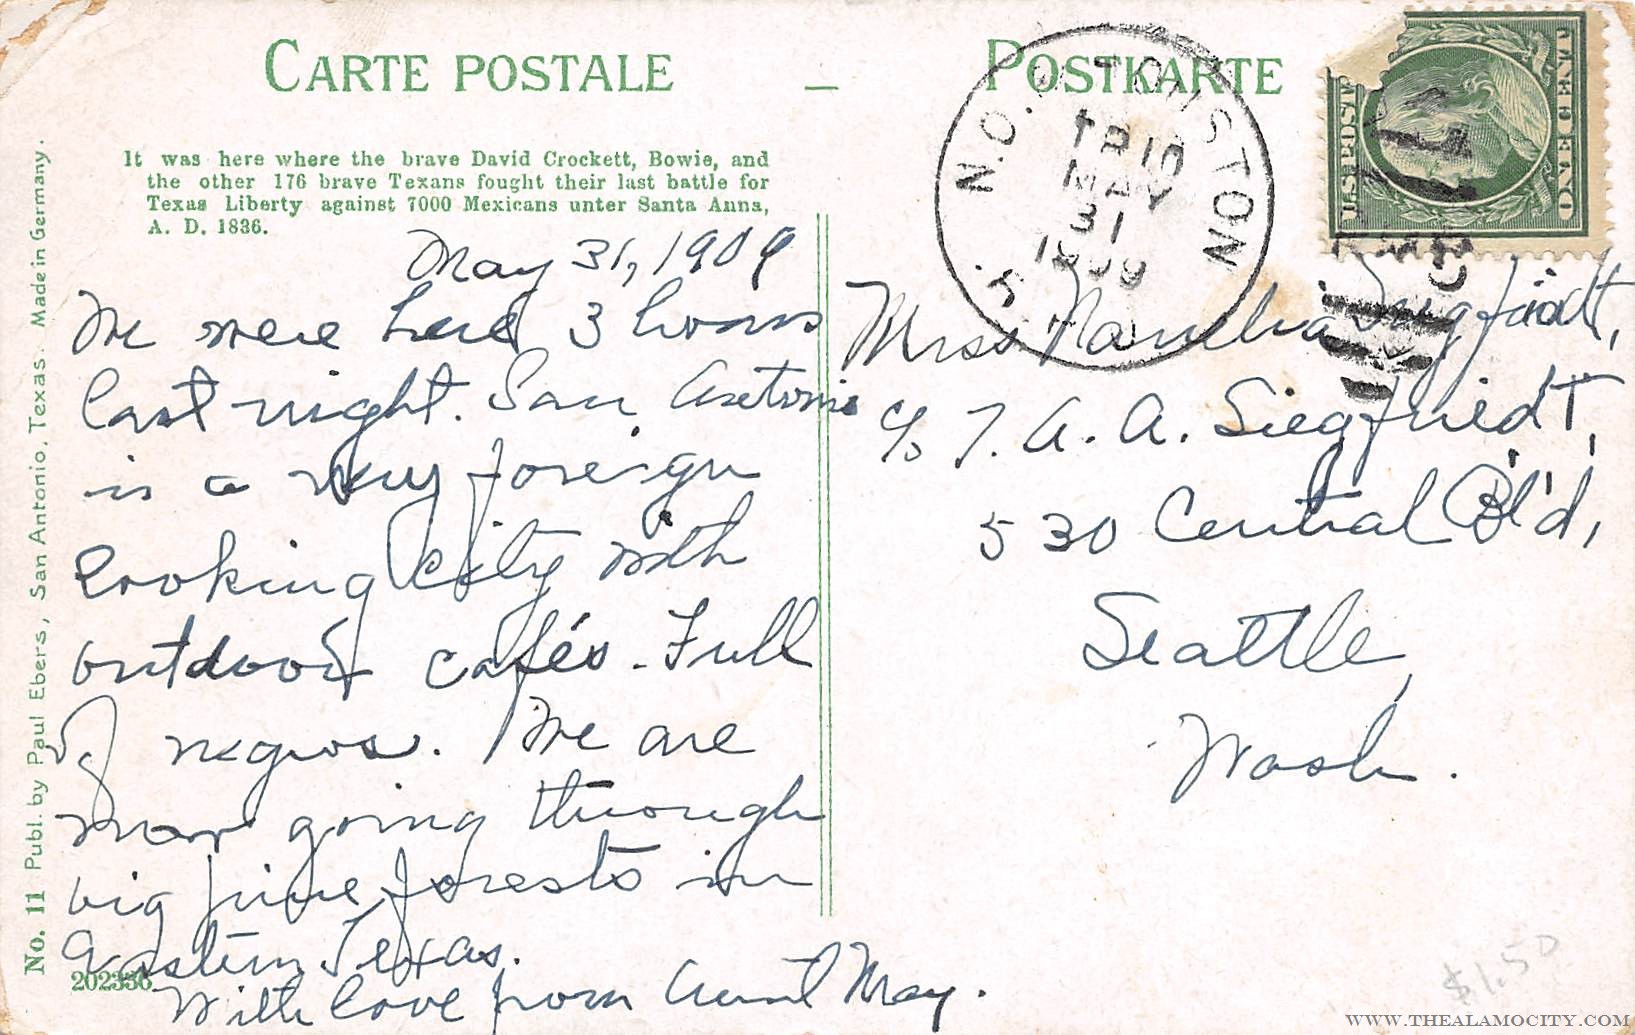 CARTE POSTALE – POSTKARTE
It was here where the brave David Crockett, Bowie, and
the other 176 brave Texans fought their last battle for
Texas Liberty against 7000 Mexicans unter Santa Anna,
A. D. 1836.
May 31, 1909
We were here 3 hours
last night. San Antonio
is a very foreign
looking city with
outdoor cafés. Full
of negros. We are
now going through
big pine forests in
Eastern Texas.
With love from Aunt May.
No. 11 Publ. by Paul Ebers, San Antonio, Texas. Made in Germany.
202356
N.O. HOUSTON
TR 10
MAY
31
1909
U.S. POST
ONE CENT
Miss Siegfriedt,
c/o T. A. A. Siegfriedt,
530 Central Bl'd,
Seattle,
Wash.
$1.50
WWW.THEALAMOCITY.COM